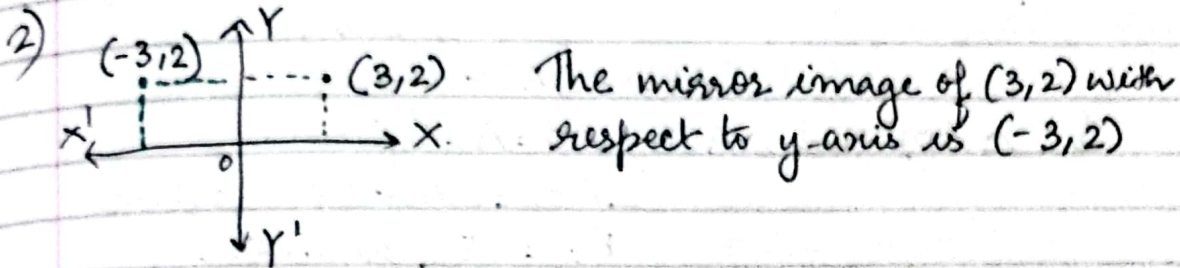 2)
Y
(-3,2)
(3,2).
The mirror image of (3,2) with
X'
X.
respect to y-axis is (-3,2)
0
Y'